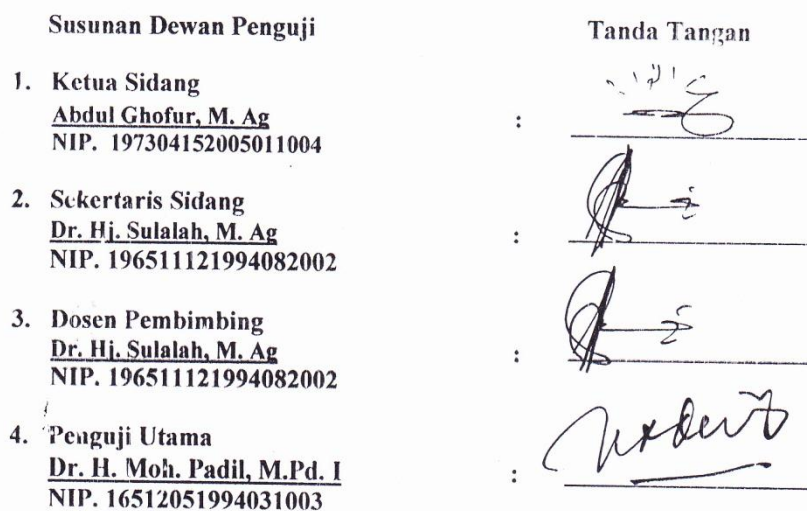 Susunan Dewan Penguji Tanda Tangan
1. Ketua Sidang
Abdul Ghofur, M. Ag
NIP. 197304152005011004 :
2. Sekertaris Sidang
Dr. Hj. Sulalah, M. Ag
NIP. 196511121994082002 :
3. Dosen Pembimbing
Dr. Hj. Sulalah, M. Ag
NIP. 196511121994082002 :
4. Penguji Utama
Dr. H. Moh. Padil, M.Pd. I
NIP. 16512051994031003 :